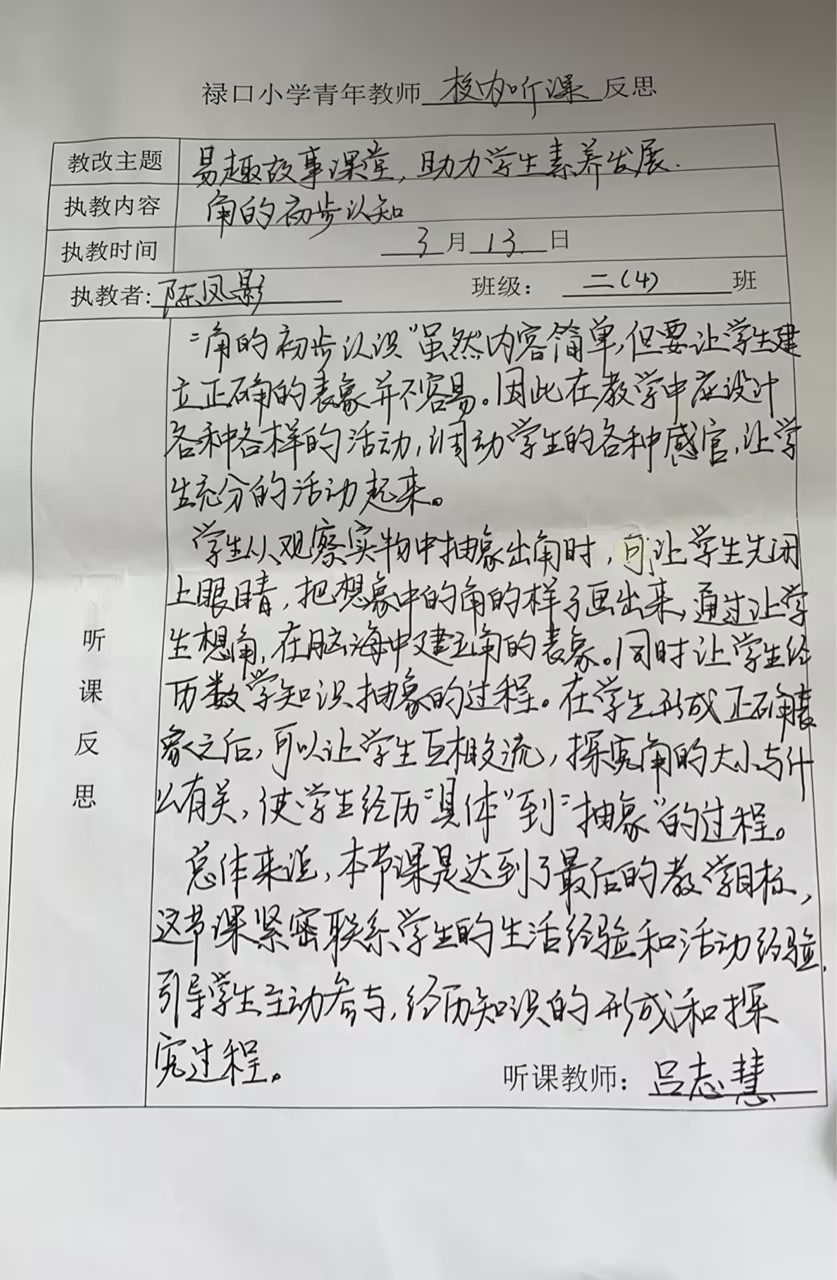 禄口小学青年教师 校内听课 反思
教改主题 易趣故事课堂，助力学生素养发展.
执教内容 角的初步认知
执教时间 3月13日
执教者: 陈凤影 班级： 二(4) 班
听课反思
“角的初步认识”虽然内容简单,但要让学生建
立正确的表象并不容易。因此在教学中应设计
各种各样的活动,调动学生的各种感官,让学
生充分的活动起来。
学生从观察实物中抽象出角时，可让学生先闭
上眼睛，把想象中的角的样子画出来,通过让学
生想角,在脑海中建立角的表象。同时让学生经
历数学知识抽象的过程。在学生形成正确表
象之后，可以让学生互相交流，探究角的大小与什
么有关，使学生经历“具体”到“抽象”的过程。
总体来说，本节课是达到了最后的教学目标，
这节课紧密联系学生的生活经验和活动经验,
引导学生主动参与,经历知识的形成和探
究过程。
听课教师：吕志慧